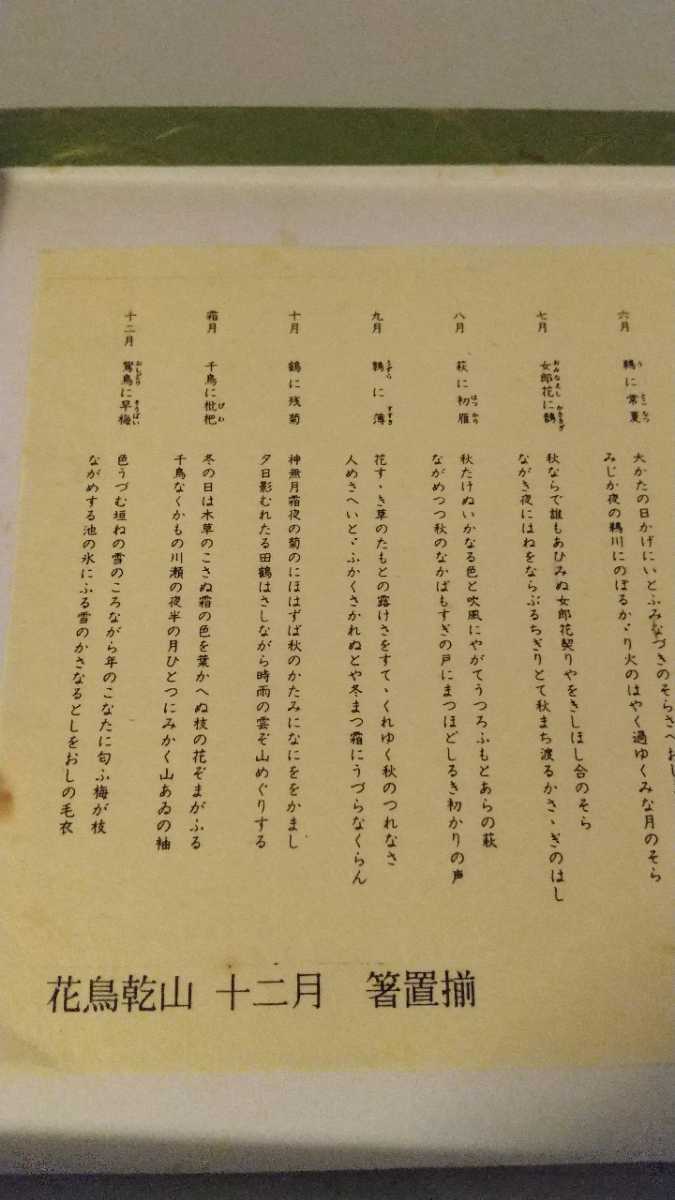 六月　鵜に常夏
大かたの日かげにいとふみなづきのそらさへおし
みじか夜の鵜川にのぼるかゞり火のはやく過ゆくみな月のそら
七月　女郎花に鵲
秋ならで誰もあひみぬ女郎花契りやをきしほし合のそら
ながき夜にはねをならぶるちぎりとて秋まち渡るかさゝぎのはし
八月　萩に初雁
秋たけぬいかなる色と吹風にやがてうつろふもとあらの萩
ながめつつ秋のなかばもすぎの戸にまつほどしるき初かりの声
九月　鶉に薄
花すゝき草のたもとの露けさをすてゝくれゆく秋のつれなさ
人めさへいとゞふかくさかれぬとや冬まつ霜にうづらなくらん
十月　鶴に残菊
神無月霜夜の菊のにほはずば秋のかたみになにををかまし
夕日影むれたる田鶴はさしながら時雨の雲ぞ山めぐりする
霜月　千鳥に枇杷
冬の日は木草のこさぬ霜の色を葉かへぬ枝の花ぞまがふる
千鳥なくかもの川瀬の夜半の月ひとつにみかく山あゐの袖
十二月　鴛鳥に早梅
色うづむ垣ねの雪のころながら年のこなたに匂ふ梅が枝
ながめする池の氷にふる雪のかさなるとしをおしの毛衣
花鳥乾山　十二月　箸置揃